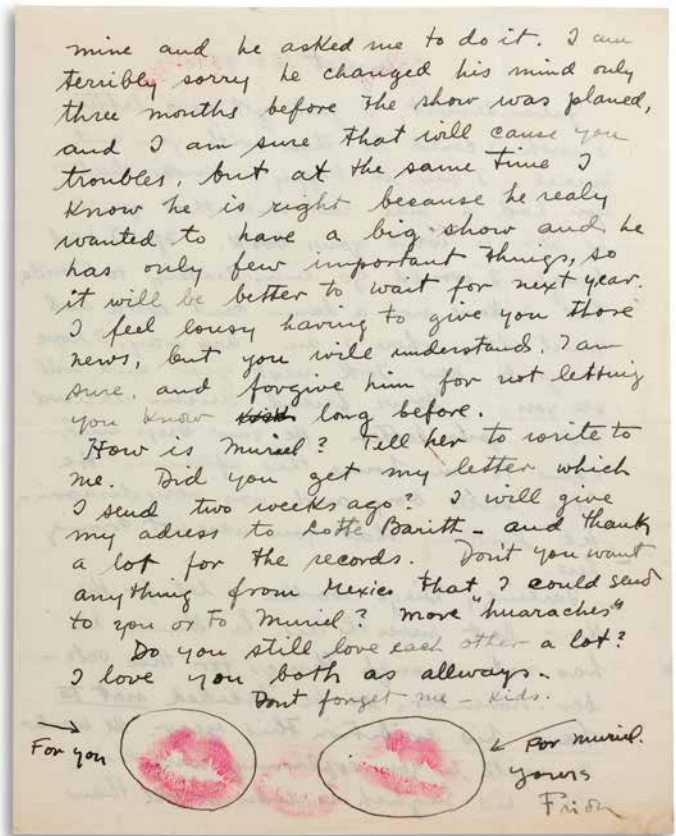 mine and he asked me to do it. I am
terribly sorry he changed his mind only
three months before the show was planed,
and I am sure that will cause you
troubles, but at the same time I
know he is right because he realy
wanted to have a big show and he
has only few important things, so
it will be better to wait for next year.
I feel lousy having to give you those
news, but you will understands. I am
sure, and forgive him for not letting
you know long before.
How is Muriel? Tell her to write to
me. Did you get my letter which
I send two weeks ago? I will give
my adress to Lotte - and thank
a lot for the records. Don't you want
anything from Mexico that I could send
to you or to Muriel? more "huaraches"
Do you still love each other a lot?
I love you both as allways.
Dont forget me - kids.
For you
For Muriel.
yours